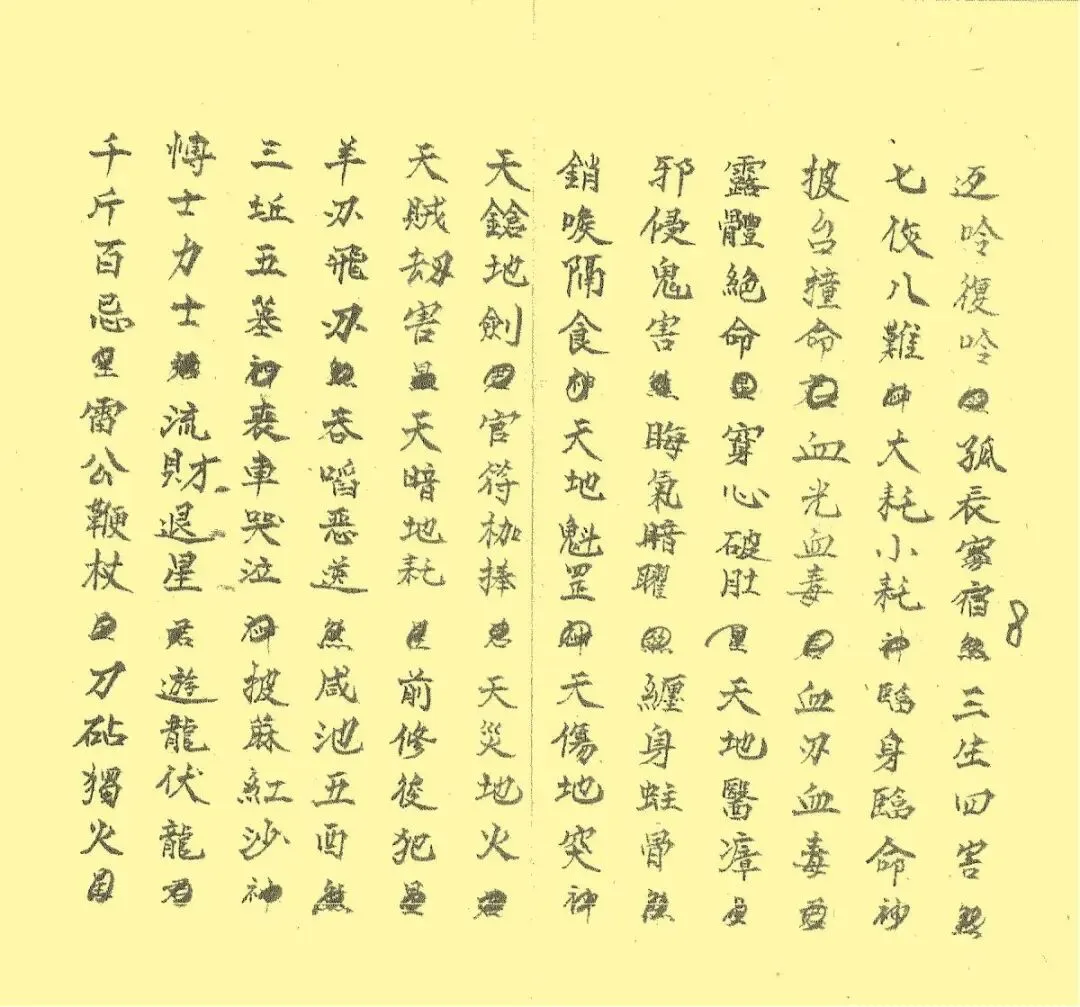 返呤復呤孤辰寡宿煞三生四害煞
七伤八難神大耗小耗神臨身臨命神
披台撞命君血光血毒君血刃血毒君
露體絕命星穿心破肚星天地醫瘴星
邪侵鬼害煞晦氣暗曜煞纏身蛀骨煞
銷喉隔食神天地魁罡神天傷地突神
天鎗地劍君官符枷捧君天災地火君
天賊劫害星天暗地耗星前修後犯星
羊刃飛刃煞吞啗惡逆煞咸池丑酉煞
三坵五墓神喪車哭泣神披蔴紅沙神
愽士力士君流財退星君遊龍伏龍君
千斤百忌星雷公鞭杖星刀砧獨火星
8